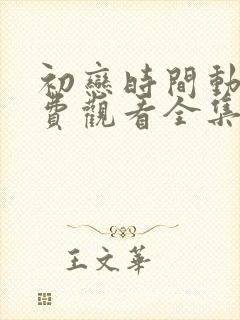 初戀時間動
費觀看全集
王文華